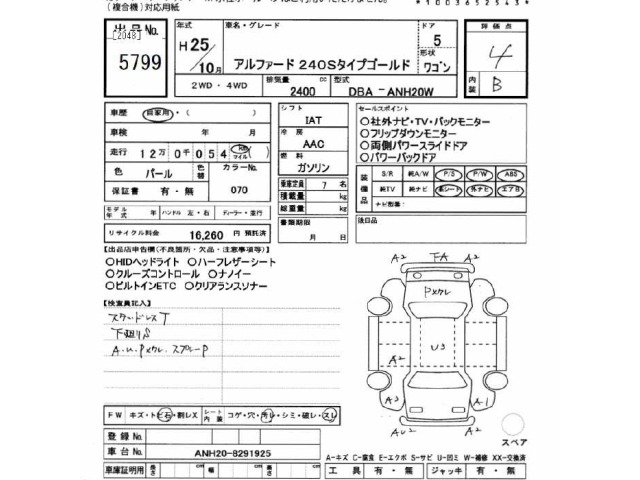 (複合機)対応用紙
*1003652543*
出品No. 年式 車名・グレード ドア 評価点
[2048]
5799
H25/10月 アルファード 240Sタイプゴールド 5 4
形状 ワゴン
2WD・4WD 排気量 cc 2400 型式 DBA-ANH20W 内装 B
車歴 自家用・( )
車検 年 月
走行 12万0千054 km マイル
色 パール 色替 カラーNo. 070
保証書 有・無
モデル年式 年 ハンドル 左・右 ディーラー・並行
リサイクル料金 16,260 円 預託済
シフト IAT
冷房 AAC
燃料 ガソリン
乗車定員 7 名
積載量 kg
総重量 kg
書類期限 月 日
セールスポイント
○社外ナビ・TV・バックモニター
○フリップダウンモニター
○両側パワースライドドア
○パワーバックドア
装備品 S/R 純A/W P/S P/W ABS
純TV 純ナビ 革シート 外ナビ エアB
ナビ型番:
後日品
【出品店申告欄(不良箇所・欠品・注意事項等)】
○HIDヘッドライト ○ハーフレザーシート
○クルーズコントロール ○ナノイー
○ビルトインETC ○クリアランスソナー
【検査員記入】
下廻りS
FW キズ・トビ石・割レX シート内装 コゲ・穴・汚レ・シミ・破レ・スレ
登録No.
車台No. ANH20-8291925
車庫証明用 長さ cm 幅 cm 高さ cm
A2 FA A2
U3
A2
A3 A1
A2
スペア
A-キズ C-腐食 E-エクボ S-サビ U-凹ミ W-補修 XX-交換済
工具 有・無 ジャッキ 有・無